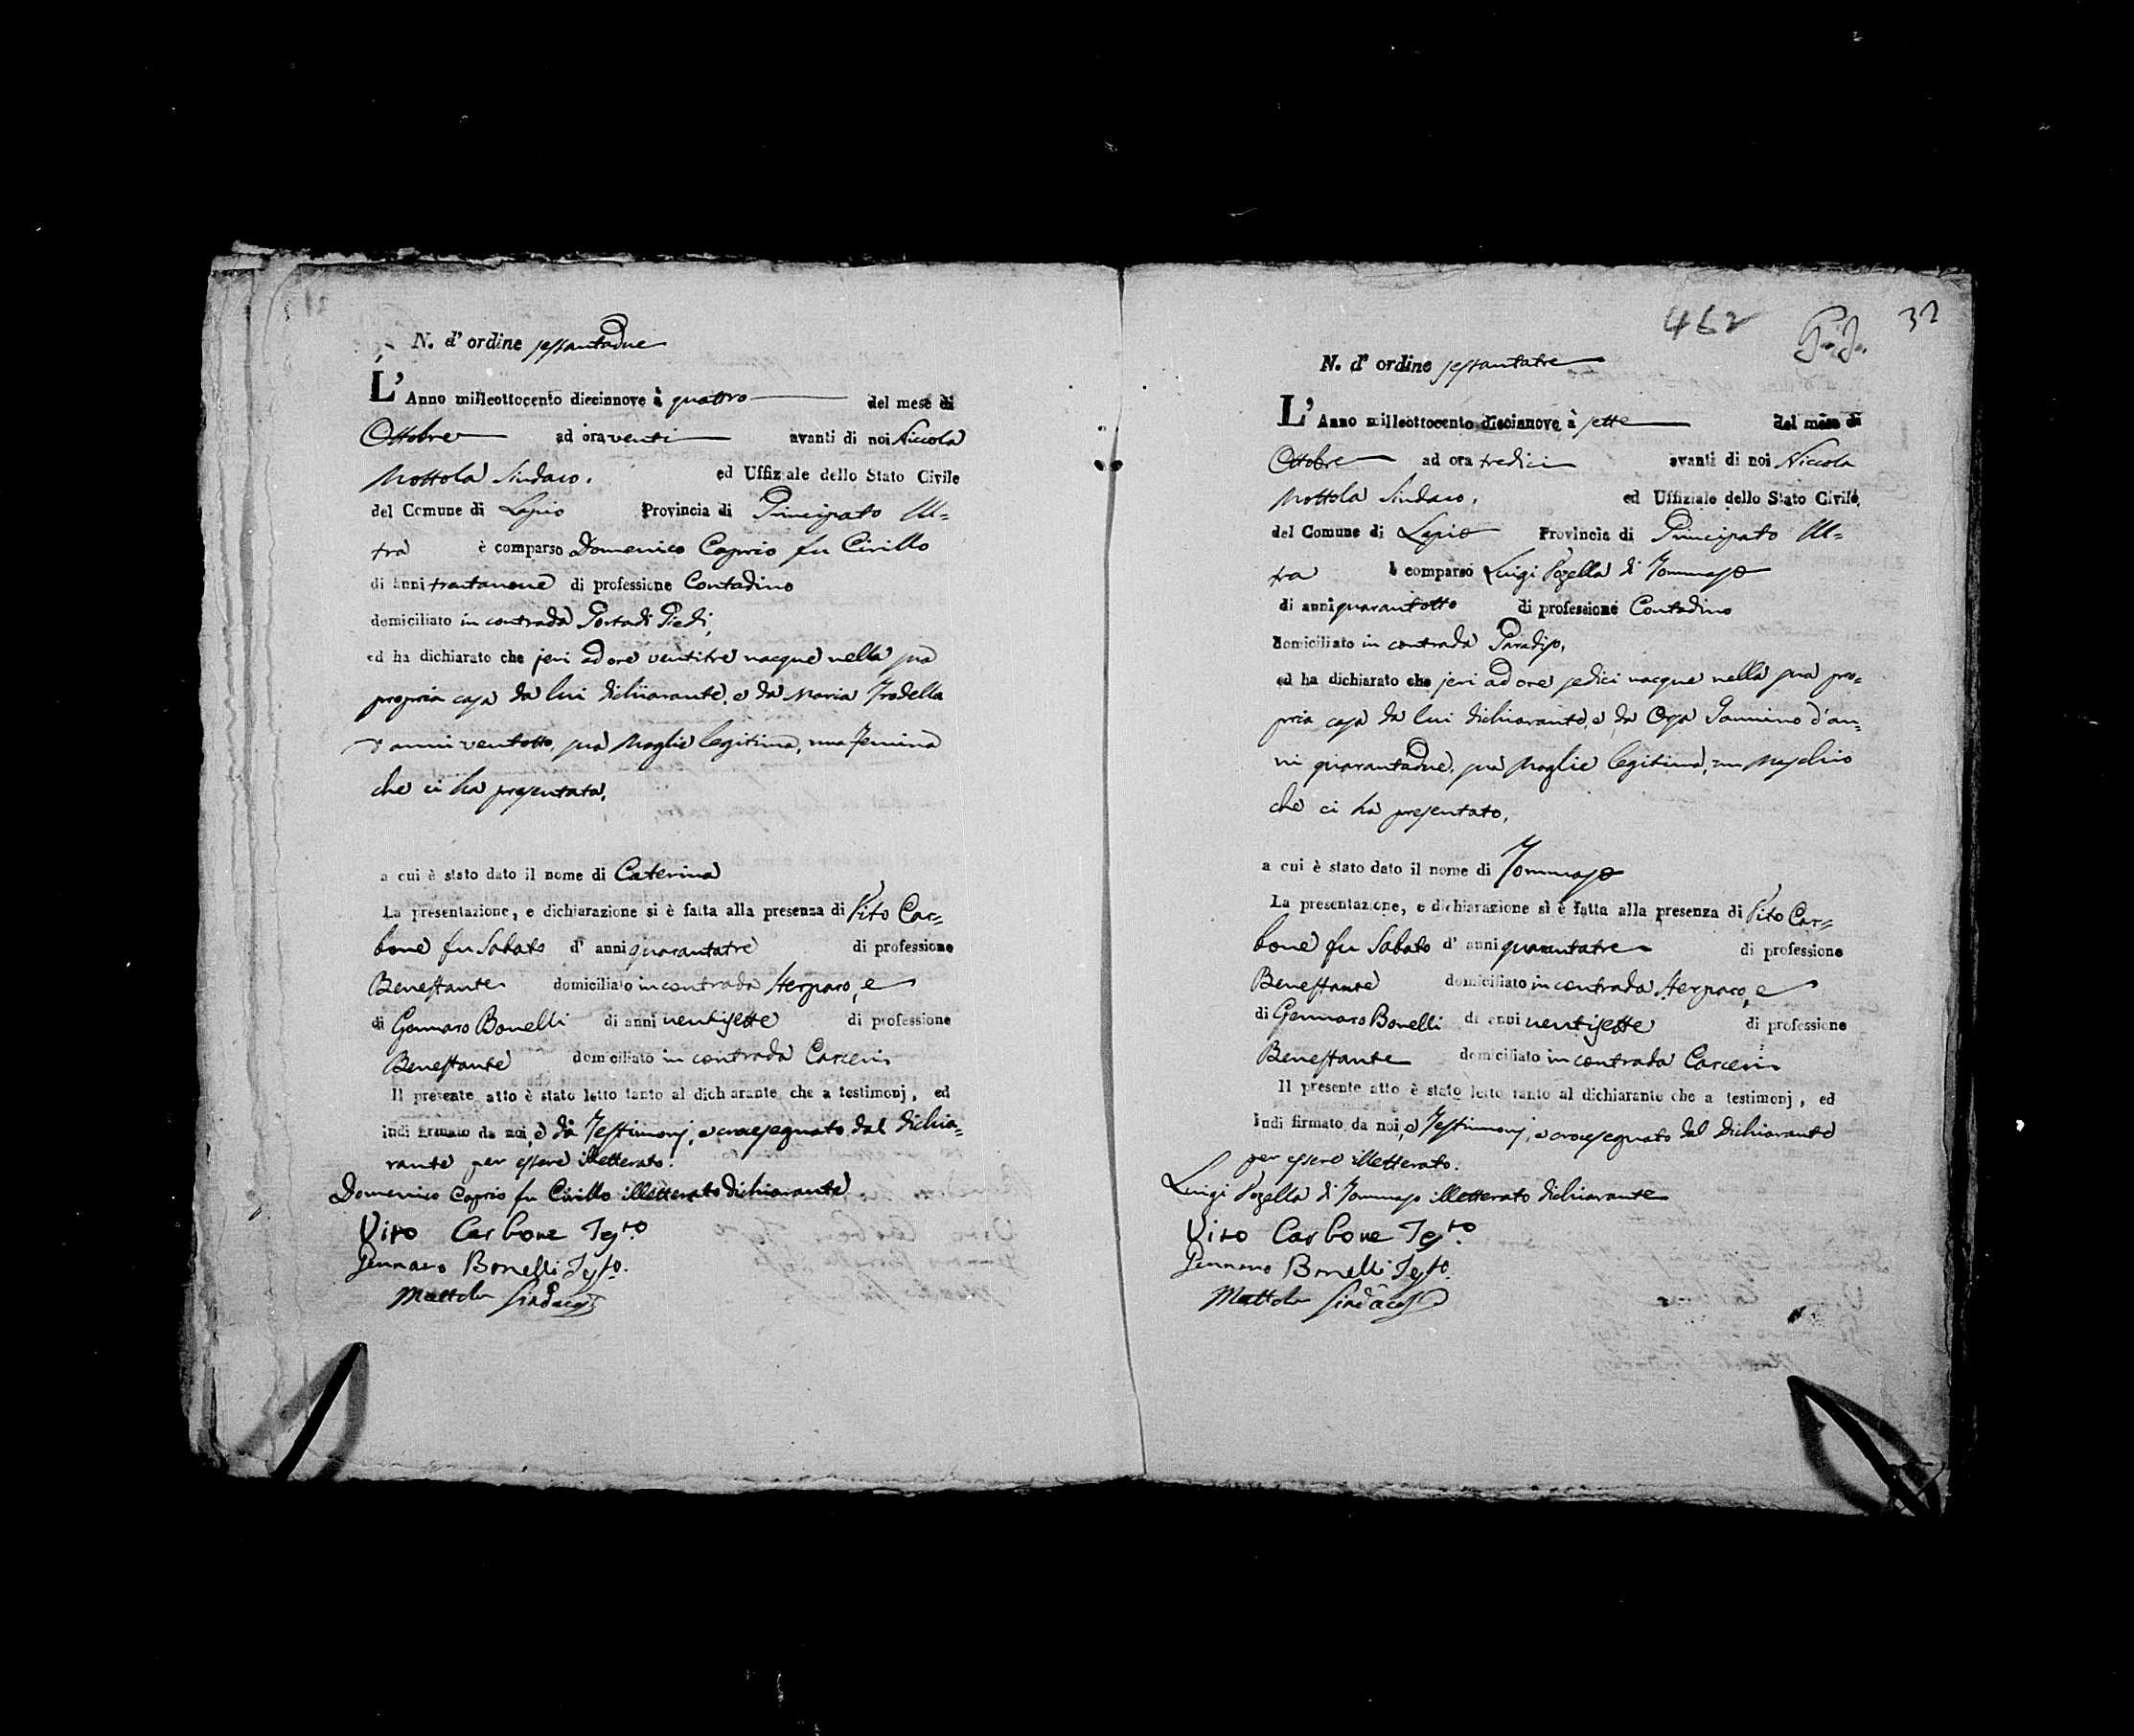 N. d' ordine sessantadue
L' Anno milleottocento diecinnove à quattro del mese di
Ottobre ad ora venti avanti di noi Niccola
Mottola Sindaco, ed Uffiziale dello Stato Civile
del Comune di Lapio Provincia di Principato Ul=
tra è comparso Domenico Caprio fu Cirillo
di anni trentanove di professione Contadino
domiciliato in contrada Porta di Piedi,
ed ha dichiarato che jeri ad ore ventitre nacque nella sua
propria casa da lui dichiarante, e da Maria Trodella
d'anni ventotto, sua Moglie legitima, una Femina
che ci ha presentata,
a cui è stato dato il nome di Caterina
La presentazione, e dichiarazione si è fatta alla presenza di Vito Car=
bone fu Sabato d' anni quarantatre di professione
Benestante domiciliato in contrada Sterparo, e
di Gennaro Bonelli di anni ventisette di professione
Benestante domiciliato in contrada Carceri
Il presente atto è stato letto tanto al dichiarante che a testimonj, ed
indi firmato da noi, e da Testimonj, e crocesegnato dal dichia=
rante per essere illetterato.
Domenico Caprio fu Cirillo illetterato dichiarante
Vito Carbone Testo.
Gennaro Bonelli Testo.
Mottola Sindaco
462 32
N. d' ordine sessantatre
L' Anno milleottocento diecinnove à sette del mese di
Ottobre ad ora tredici avanti di noi Niccola
Mottola Sindaco, ed Uffiziale dello Stato Civile
del Comune di Lapio Provincia di Principato Ul=
tra è comparso Luigi Pozella di Tommaso
di anni quarantotto di professione Contadino
domiciliato in contrada Paradiso,
ed ha dichiarato che jeri ad ore sedici nacque nella sua pro=
pria casa da lui dichiarante, e da Orsa Iannino d'an=
ni quarantadue, sua Moglie legitima, un Maschio
che ci ha presentato,
a cui è stato dato il nome di Tommaso
La presentazione, e dichiarazione si è fatta alla presenza di Vito Car=
bone fu Sabato d' anni quarantatre di professione
Benestante domiciliato in contrada Sterparo, e
di Gennaro Bonelli di anni ventisette di professione
Benestante domiciliato in contrada Carceri
Il presente atto è stato letto tanto al dichiarante che a testimonj, ed
indi firmato da noi, e Testimonj, e crocesegnato dal dichiarante
per essere illetterato.
Luigi Pozella di Tommaso illetterato dichiarante
Vito Carbone Testo.
Gennaro Bonelli Testo.
Mottola Sindaco